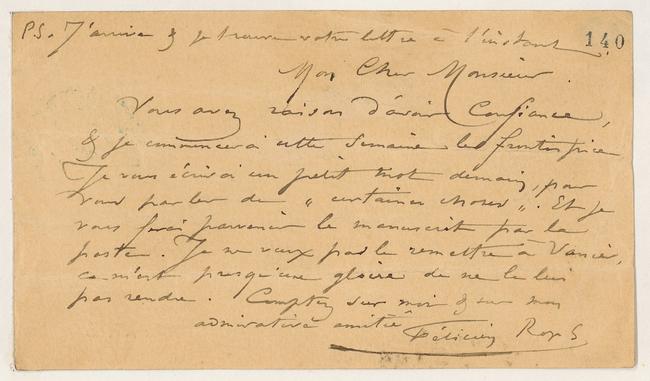 P.S. J'arrive & je trouve votre lettre à l'instant.
140
Mon Cher Monsieur.
Vous avez raison d'avoir Confiance,
& je commencerai cette semaine le frontispice
Je vous écrirai un petit mot demain, pour
vous parler de « certaines choses ». Et je
vous ferai parvenir le manuscrit par la
poste. Je ne veux pas le remettre à Vanier,
ce n'est presqu'une gloire de ne le lui
pas rendre. Comptez sur moi & sur mon
admirative amitié
Félicien Rops